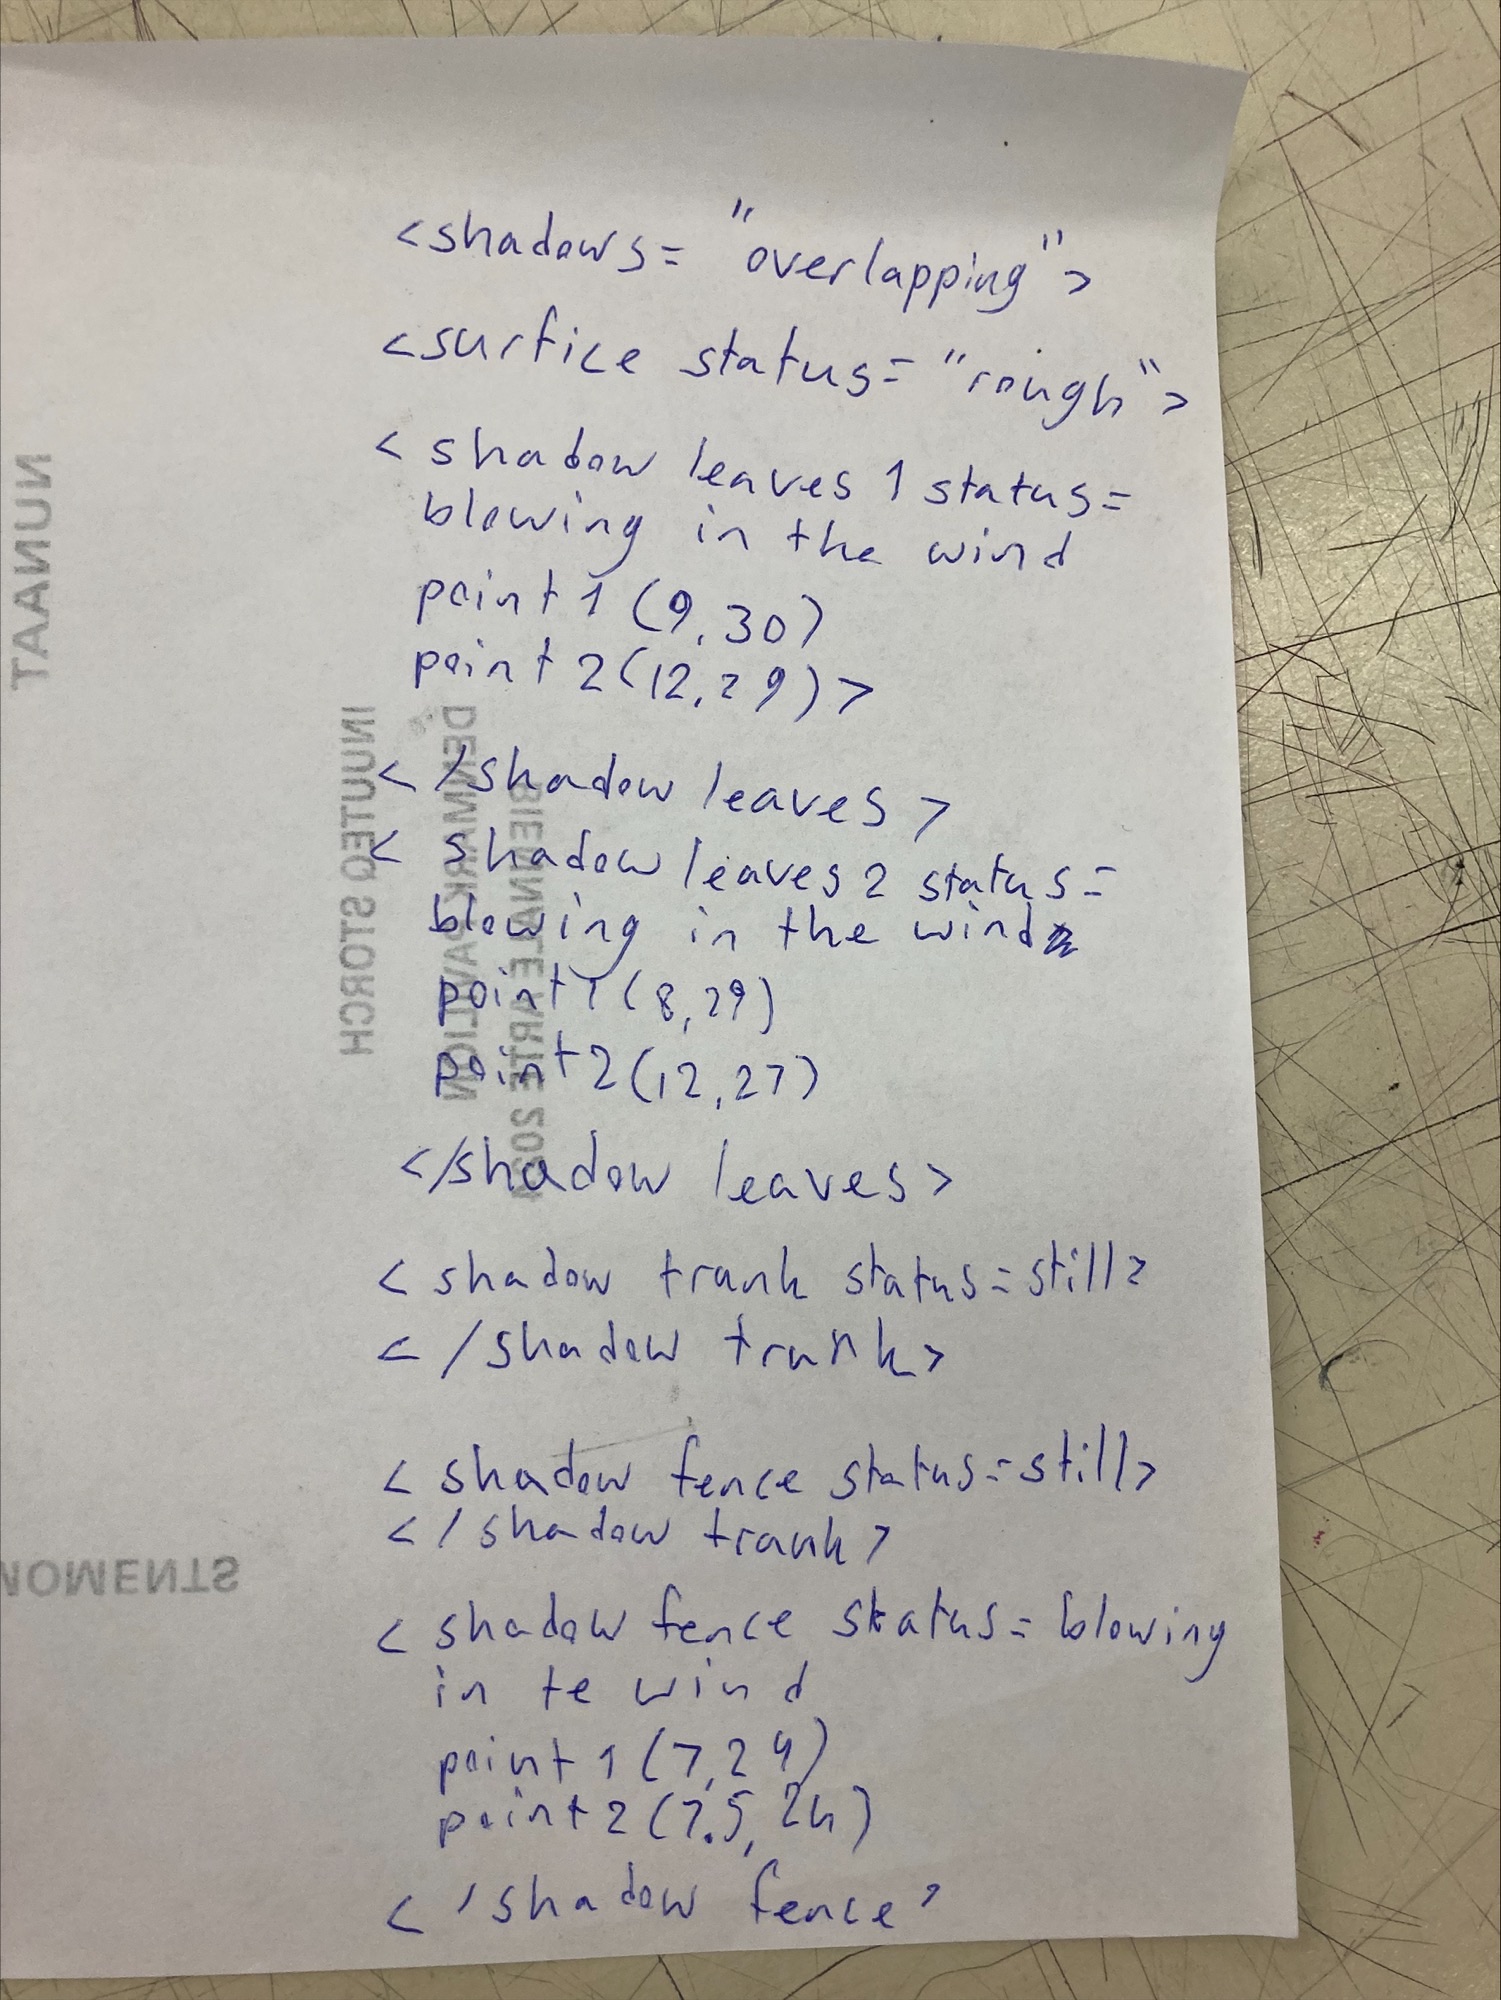 <shadows= "overlapping">
<surfice status= "rough">
< shadow leaves 1 status=
blowing in the wind
point 1 (9,30)
point 2 (12,29)>
< /shadow leaves >
< shadow leaves 2 status=
blowing in the wind
point 1 (8,29)
point 2 (12,27)
</shadow leaves>
< shadow trank status=still>
< /shadow trunk>
< shadow fence status=still>
< / shadow trank>
< shadow fence status= blowing
in te wind
point 1 (7,24)
point 2 (7.5, 24)
< /shadow fence>
NUNAAT
INUUTEQ STORCH
DENMARK PAVILION
BIENNALE ARTE 2024
MOMENTS